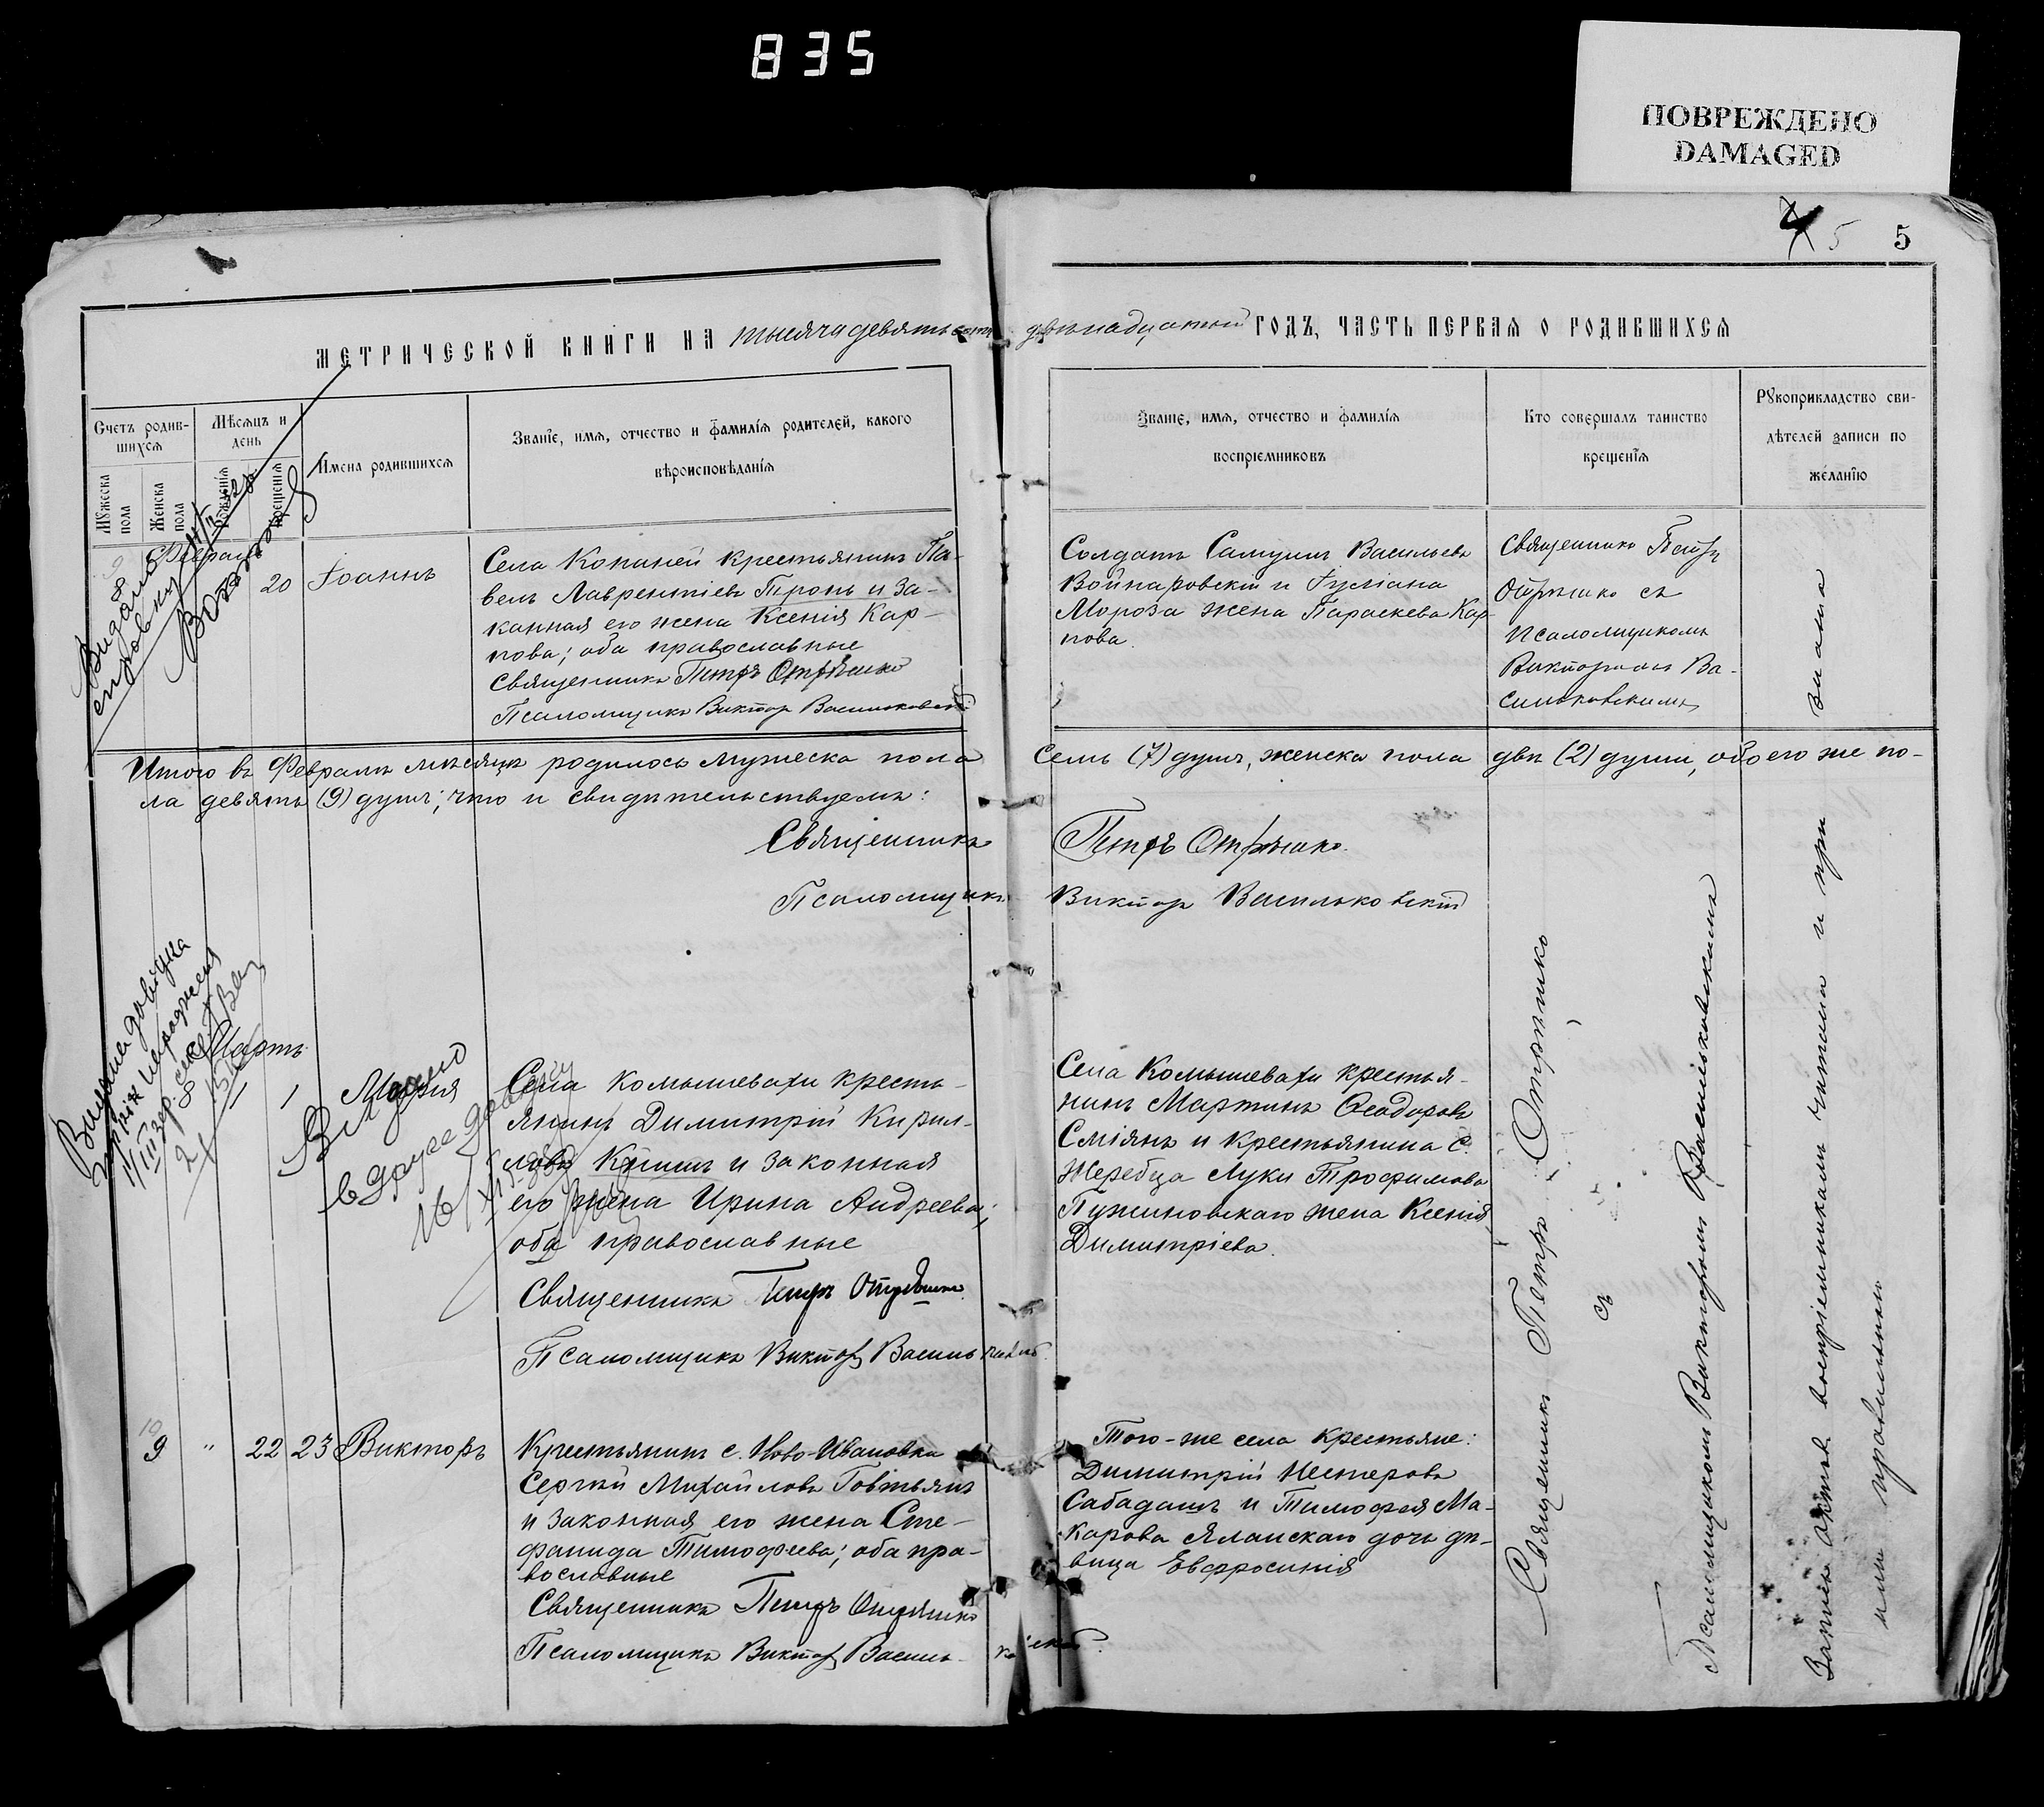 835
ПОВРЕЖДЕНО
DAMAGED
4 5 5
МЕТРИЧЕСКОЙ КНИГИ НА тысяча девятьсотъ двѣнадцатый ГОДЪ, ЧАСТЬ ПЕРВАЯ О РОДИВШИХСЯ
Счетъ родив-
шихся
Мужеска пола
Женска пола
Мѣсяцъ и
день
рожденія
крещенія
Имена родившихся
Званіе, имя, отчество и фамилія родителей, какого
вѣроисповѣданія
Званіе, имя, отчество и фамилія
воспріемниковъ
Кто совершалъ таинство
крещенія
Рукоприкладство сви-
дѣтелей записи по
желанію
Февраль
8
20
Іоаннъ
Села Копаней крестьянинъ Па-
велъ Лаврентіевъ Тронь и за-
конная его жена Ксенія Кар-
пова; оба православные
Священникъ Петръ Отрѣшко
Псаломщикъ Викторъ Васильковскій
Солдатъ Самуилъ Васильевъ
Войнаровскій и Іуліана
Мороза жена Параскева Кар-
пова.
Священникъ Петръ
Отрѣшко съ
псаломщикомъ
Викторомъ Ва-
сильковскимъ
Видано
Итого въ Февралѣ мѣсяцѣ родилось мужеска пола семь (7) душъ, женска пола двѣ (2) души, обоего же по-
ла девять (9) душъ; что и свидѣтельствуемъ:
Священникъ Петръ Отрѣшко.
Псаломщикъ Викторъ Васильковскій
Видана довідка
Мартъ
1
1
Марія
Видано
Села Комышевахи кресть-
янинъ Димитрій Кирил-
ловъ Книшъ и законная
его жена Ирина Андреева;
оба православные
Священникъ Петръ Отрѣшко.
Псаломщикъ Викторъ Васильковскій.
Села Комышевахи крестья-
нинъ Мартинъ Ѳеодоровъ
Сміянъ и крестьянина с.
Жеребца Луки Трофимова
Пужиновскаго жена Ксенія
Димитріева.
10
9 " 22 23 Викторъ
Крестьянинъ с. Ново-Ивановки
Сергѣй Михайловъ Говтьянъ
и законная его жена Сте-
фанида Тимофеева; оба пра-
вославные
Священникъ Петръ Отрѣшко
Псаломщикъ Викторъ Васильковскій.
Того-же села крестьяне:
Димитрій Нестеровъ
Сабадашъ и Тимофея Ма-
карова Яланскаго дочь дѣ-
вица Евфросинія
Священникъ Петръ Отрѣшко
съ
Псаломщикомъ Викторомъ Васильковскимъ
Запись актов. воспріемникамъ читана и при
знана
ими правильною